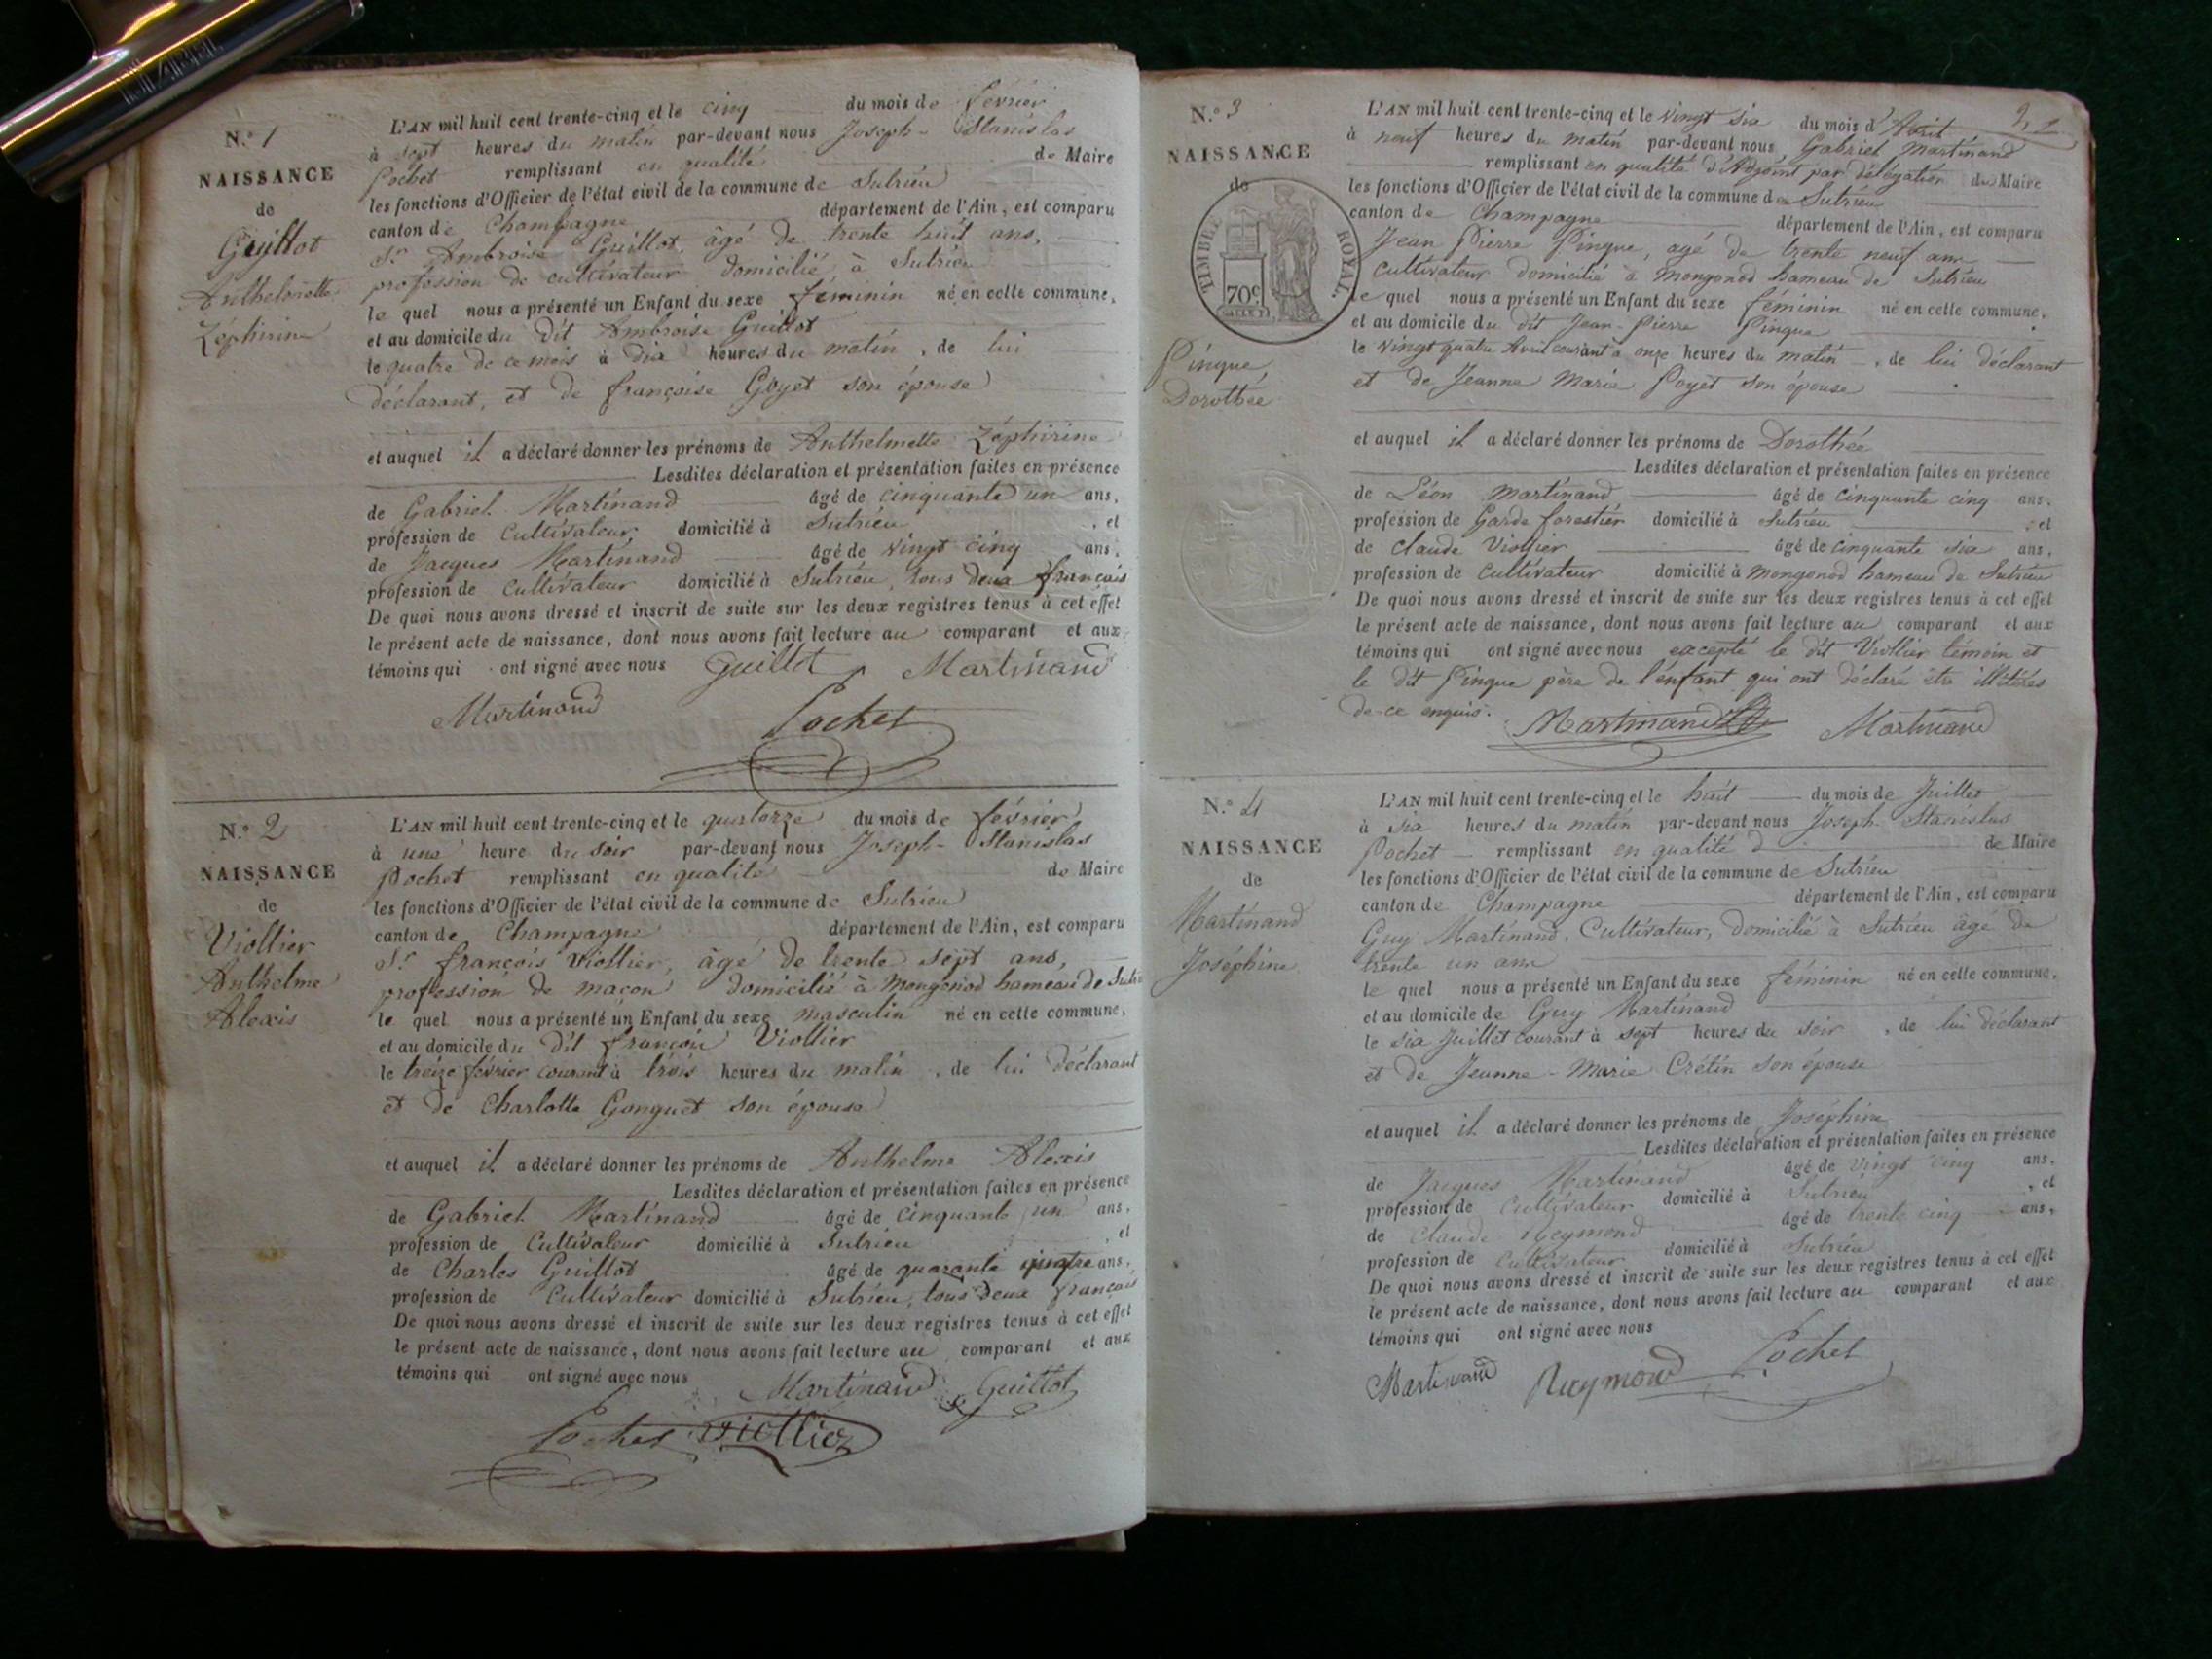 N.° 1
NAISSANCE
de
Guillot
Anthelmette
Zéphirine
L'AN mil huit cent trente-cinq et le cinq du mois de février
à sept heures du matin par-devant nous Joseph-Stanislas
Pochet remplissant en qualité de Maire
les fonctions d'Officier de l'état civil de la commune de Sutrieu
canton de Champagne département de l'Ain, est comparu
Sr Ambroise Guillot, âgé de trente huit ans,
profession de cultivateur domicilié à Sutrieu
le quel nous a présenté un Enfant du sexe féminin né en cette commune,
et au domicile du dit Ambroise Guillot
le quatre de ce mois à dix heures du matin, de lui
déclarant, et de françoise Goyet son épouse
et auquel il a déclaré donner les prénoms de Anthelmette Zéphirine
Lesdites déclaration et présentation faites en présence
de Gabriel Martinand âgé de cinquante un ans,
profession de Cultivateur domicilié à Sutrieu, et
de Jacques Martinand âgé de vingt cinq ans,
profession de Cultivateur domicilié à Sutrieu, tous deux français
De quoi nous avons dressé et inscrit de suite sur les deux registres tenus à cet effet
le présent acte de naissance, dont nous avons fait lecture au comparant et aux
témoins qui ont signé avec nous Guillot Martinand
Martinand Pochet
N.° 2
NAISSANCE
de
Viollier
Anthelme
Alexis
L'AN mil huit cent trente-cinq et le quatorze du mois de février
à une heure du soir par-devant nous Joseph-Stanislas
Pochet remplissant en qualité de Maire
les fonctions d'Officier de l'état civil de la commune de Sutrieu
canton de Champagne département de l'Ain, est comparu
Sr françois Viollier, âgé de trente sept ans,
profession de maçon domicilié à Mongonod hameau de Sutrieu
le quel nous a présenté un Enfant du sexe masculin né en cette commune,
et au domicile du dit françois Viollier
le treize février courant à trois heures du matin, de lui déclarant
et de Charlotte Gonguet son épouse
et auquel il a déclaré donner les prénoms de Anthelme Alexis
Lesdites déclaration et présentation faites en présence
de Gabriel Martinand âgé de cinquante un ans,
profession de Cultivateur domicilié à Sutrieu, et
de Charles Guillot âgé de quarante quatre ans,
profession de Cultivateur domicilié à Sutrieu, tous deux français
De quoi nous avons dressé et inscrit de suite sur les deux registres tenus à cet effet
le présent acte de naissance, dont nous avons fait lecture au comparant et aux
témoins qui ont signé avec nous Martinand Guillot
Pochet Viollier
N.° 3
NAISSANCE
de
TIMBRE ROYAL.
70c
Pingue
Dorothée
L'AN mil huit cent trente-cinq et le vingt six du mois d'Avril
à neuf heures du matin par-devant nous Gabriel Martinand
remplissant en qualité d'Adjoint par délégation du Maire
les fonctions d'Officier de l'état civil de la commune de Sutrieu
canton de Champagne département de l'Ain, est comparu
Jean Pierre Pingue, agé de trente neuf ans
Cultivateur domicilié à Mongonod hameau de Sutrieu
le quel nous a présenté un Enfant du sexe féminin né en cette commune,
et au domicile du dit Jean-Pierre Pingue
le vingt quatre Avril courant à onze heures du matin, de lui déclarant
et de Jeanne Marie Poyet son épouse
et auquel il a déclaré donner les prénoms de Dorothée
Lesdites déclaration et présentation faites en présence
de Léon Martinand âgé de cinquante cinq ans,
profession de Garde forestier domicilié à Sutrieu, et
de Claude Viollier âgé de cinquante six ans,
profession de Cultivateur domicilié à Mongonod hameau de Sutrieu
De quoi nous avons dressé et inscrit de suite sur les deux registres tenus à cet effet
le présent acte de naissance, dont nous avons fait lecture au comparant et aux
témoins qui ont signé avec nous excepté le dit Viollier témoin et
le dit Pingue père de l'enfant qui ont déclaré être illitérés
de ce enquis. Martinand Martinand
N.° 4
NAISSANCE
de
Martinand
Joséphine
L'AN mil huit cent trente-cinq et le huit du mois de Juillet
à six heures du matin par-devant nous Joseph-Stanislas
Pochet remplissant en qualité de Maire
les fonctions d'Officier de l'état civil de la commune de Sutrieu
canton de Champagne département de l'Ain, est comparu
Guy Martinand, Cultivateur, domicilié à Sutrieu âge de
trente un ans
le quel nous a présenté un Enfant du sexe féminin né en cette commune,
et au domicile de Guy Martinand
le six Juillet courant à sept heures du soir, de lui déclarant
et de Jeanne-Marie Crétin son épouse
et auquel il a déclaré donner les prénoms de Joséphine
Lesdites déclaration et présentation faites en présence
de Jacques Martinand âgé de vingt cinq ans,
profession de Cultivateur domicilié à Sutrieu, et
de Claude Reymond âgé de trente cinq ans,
profession de Cultivateur domicilié à Sutrieu
De quoi nous avons dressé et inscrit de suite sur les deux registres tenus à cet effet
le présent acte de naissance, dont nous avons fait lecture au comparant et aux
témoins qui ont signé avec nous
Martinand Reymond Pochet